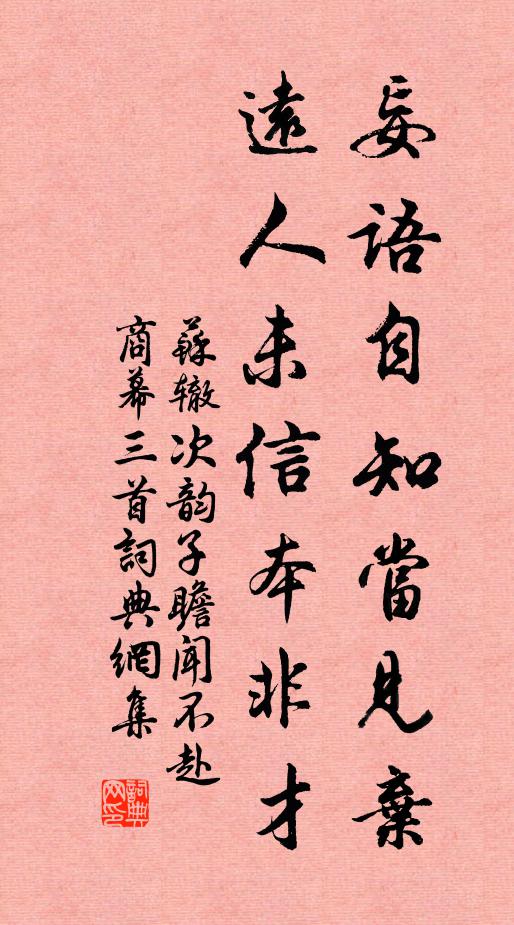 妄語自知當見棄
遠人未信本非才
蘇辙次韵子瞻闻不赴
商幕三首詞典網集
詞典网印